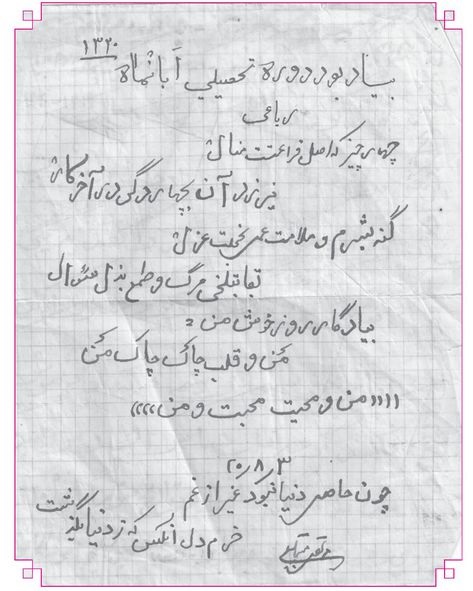 ۱۳۲۰
بیاد بود دوره تحصیلی آبانماه
رباعی
چهار چیز که اصل فراغتست و منال
نیرزد آن بچهار دگر در آخر کار
گنه بشرم و ملامت عمل بخجلت عزل
بقا بتلخی مرگ و طمع بذل سئوال
بیادگار روز خوش من 2
کن و قلب چاک چاک کن
)))) من و محبت محبت و من ((((
۲۰٫۸٫۳
چون حاصل دنیا نبود غیر از غم
خرم دل آنکس که ز دنیا بگذشت